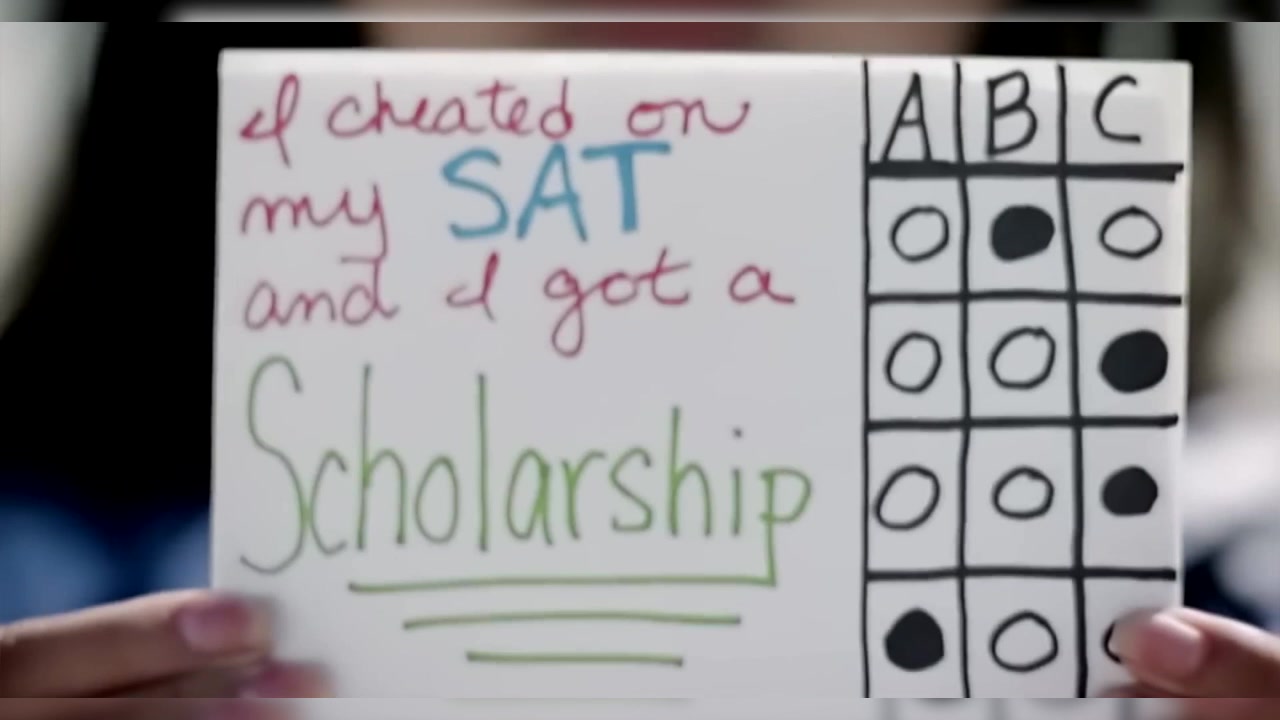 I cheated on
my SAT
and I got a
Scholarship
A B C